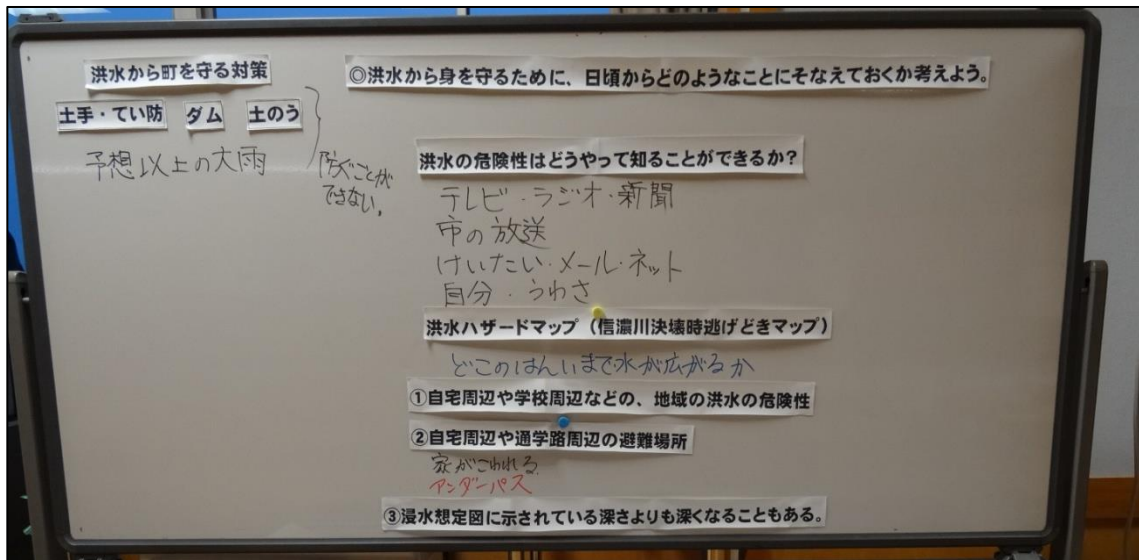 洪水から町を守る対策
土手・てい防 ダム 土のう
予想以上の大雨
防ぐことが
できない。
◎洪水から身を守るために、日頃からどのようなことにそなえておくか考えよう。
洪水の危険性はどうやって知ることができるか？
テレビ・ラジオ・新聞
市の放送
けいたい・メール・ネット
自分・うわさ
洪水ハザードマップ（信濃川決壊時逃げどきマップ）
どこのはんいまで水が広がるか
①自宅周辺や学校周辺などの、地域の洪水の危険性
②自宅周辺や通学路周辺の避難場所
家がこわれる
アンダーパス
③浸水想定図に示されている深さよりも深くなることもある。